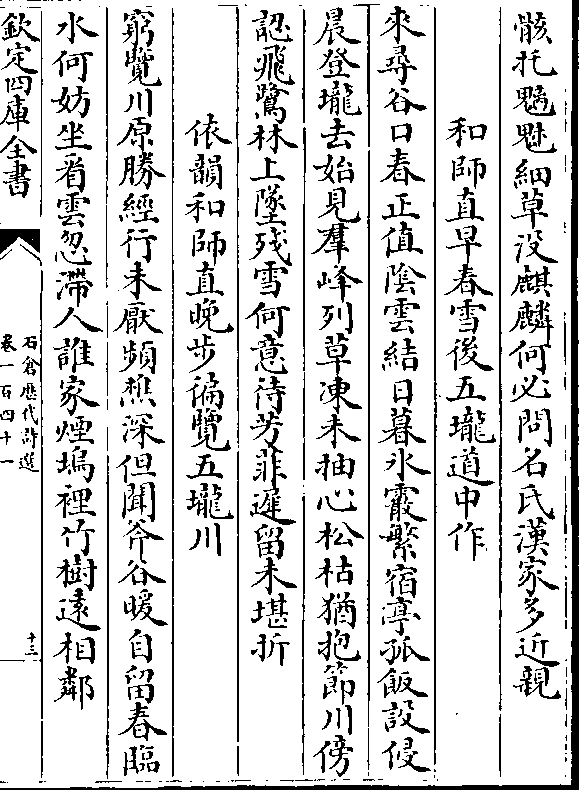 骸托魑魅細草没麒麟何必問名氏漢家多近親
和師直早春雪後五壠道中作
來尋谷口春正值陰雲結日暮氷霰繁宿亭孤飯設侵
晨登壠去始見羣峰列草凍未抽心松枯猶抱節川傍
認飛鷺林上墜殘雪何意待芳菲遲留未堪折
依韻和師直晚步徧覽五壠川
窮覽川原勝經行未厭頻樵深但聞斧谷暖自留春臨
水何妨坐看雲忽滯人誰家煙塢裡竹樹遠相鄰
欽定四庫全書
石倉歷代詩選
卷一百四十一
十三